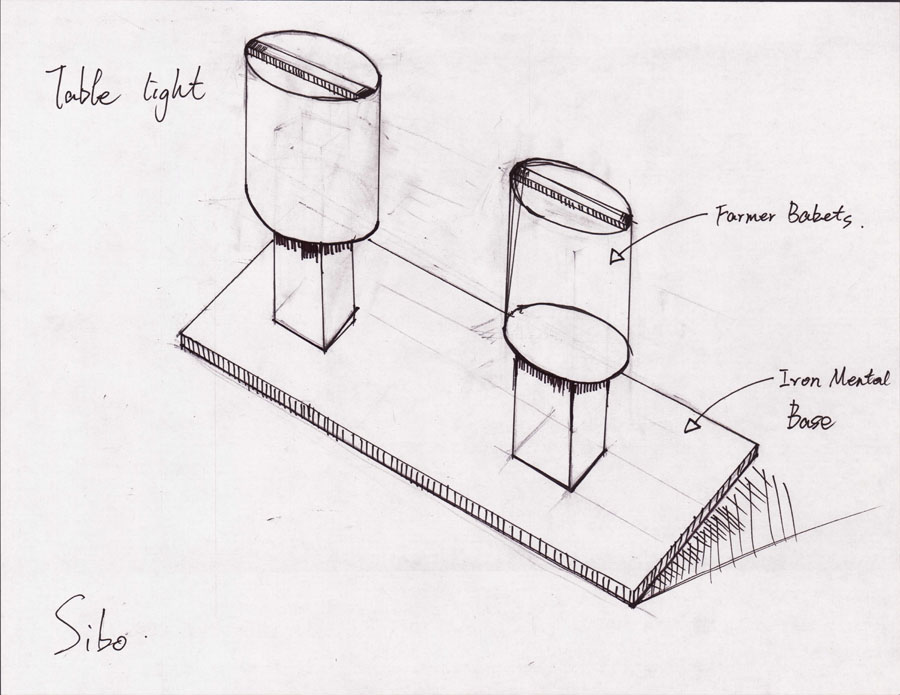 Table light
Farmer Babets.
Iron Mental
Base
Sibo.